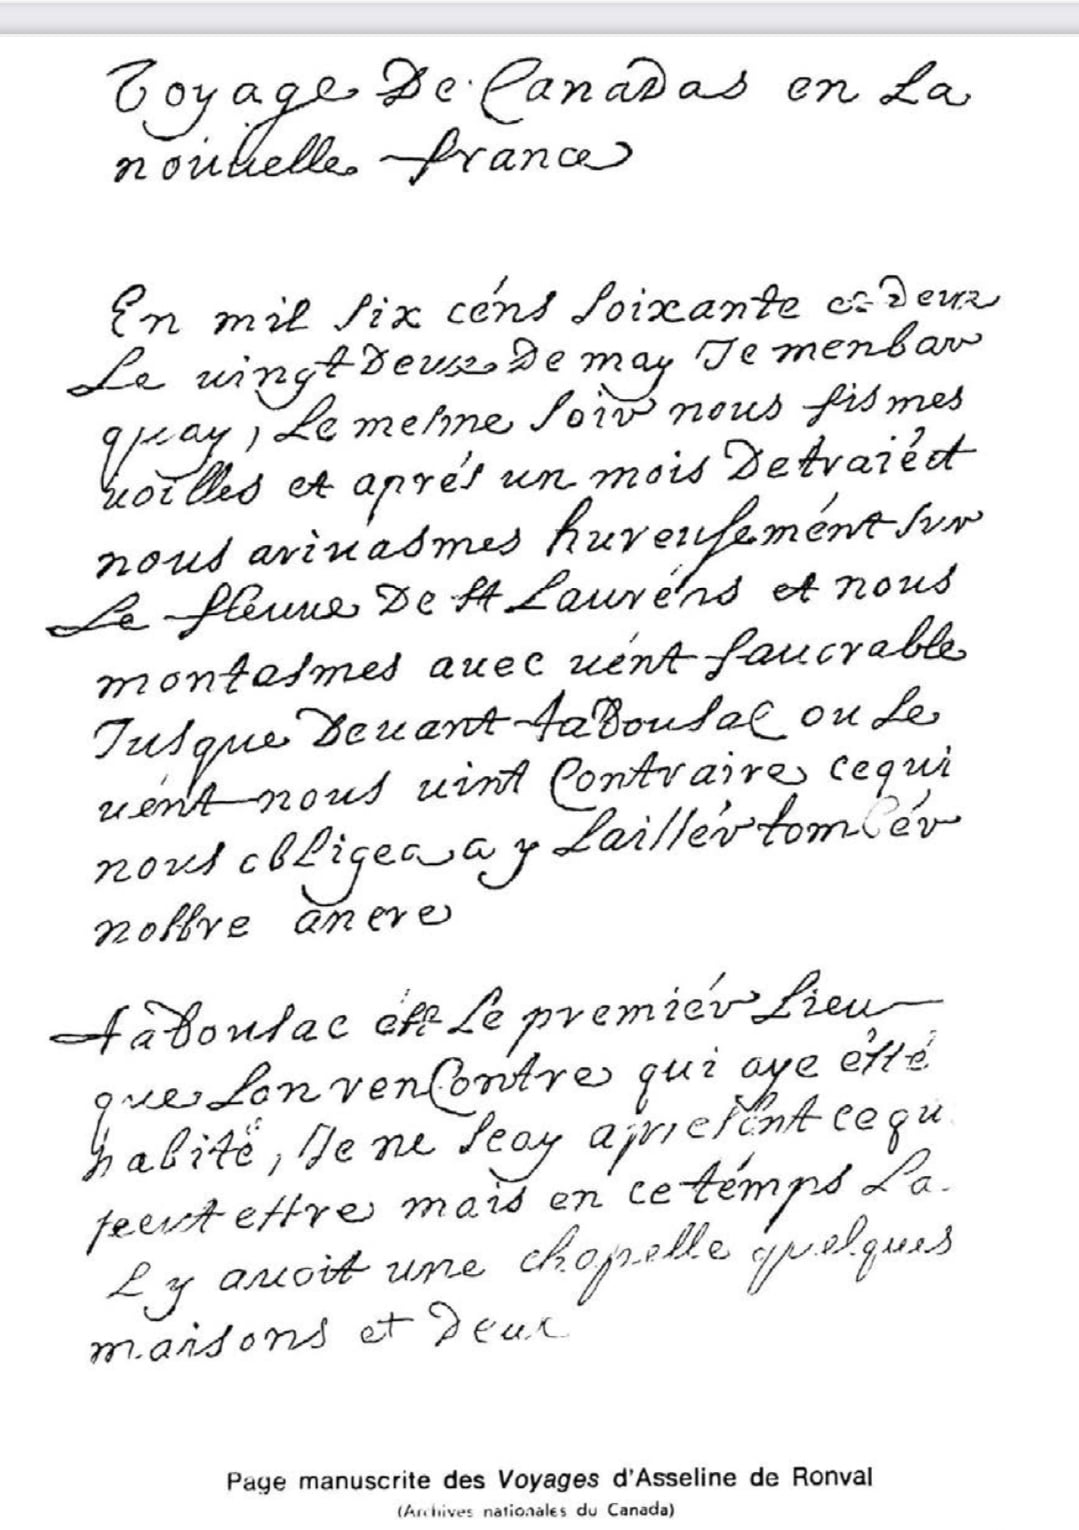 Voyage De Canadas en La
nouuelle france
En mil six céns soixante et deux
Le uingt Deux De may Je menbar
quay, Le mesme soir nous fismes
uoilles et aprés un mois De traiéct
nous ariuasmes hureusemént sur
Le fleuue De st Lauréns et nous
montasmes auec uént fauorable
Jusque Deuant taDousac ou Le
uént nous uint Contraire ce qui
nous obligea a y Laissér tombér
nostre ancre
taDousac est Le premiér Lieu
que Lon renContre qui aye esté
habité, Je ne scay apresént ce qu
peut estre mais en ce témps La
L y auoit une chapelle quelques
maisons et Deux
Page manuscrite des Voyages d'Asseline de Ronval
(Archives nationales du Canada)